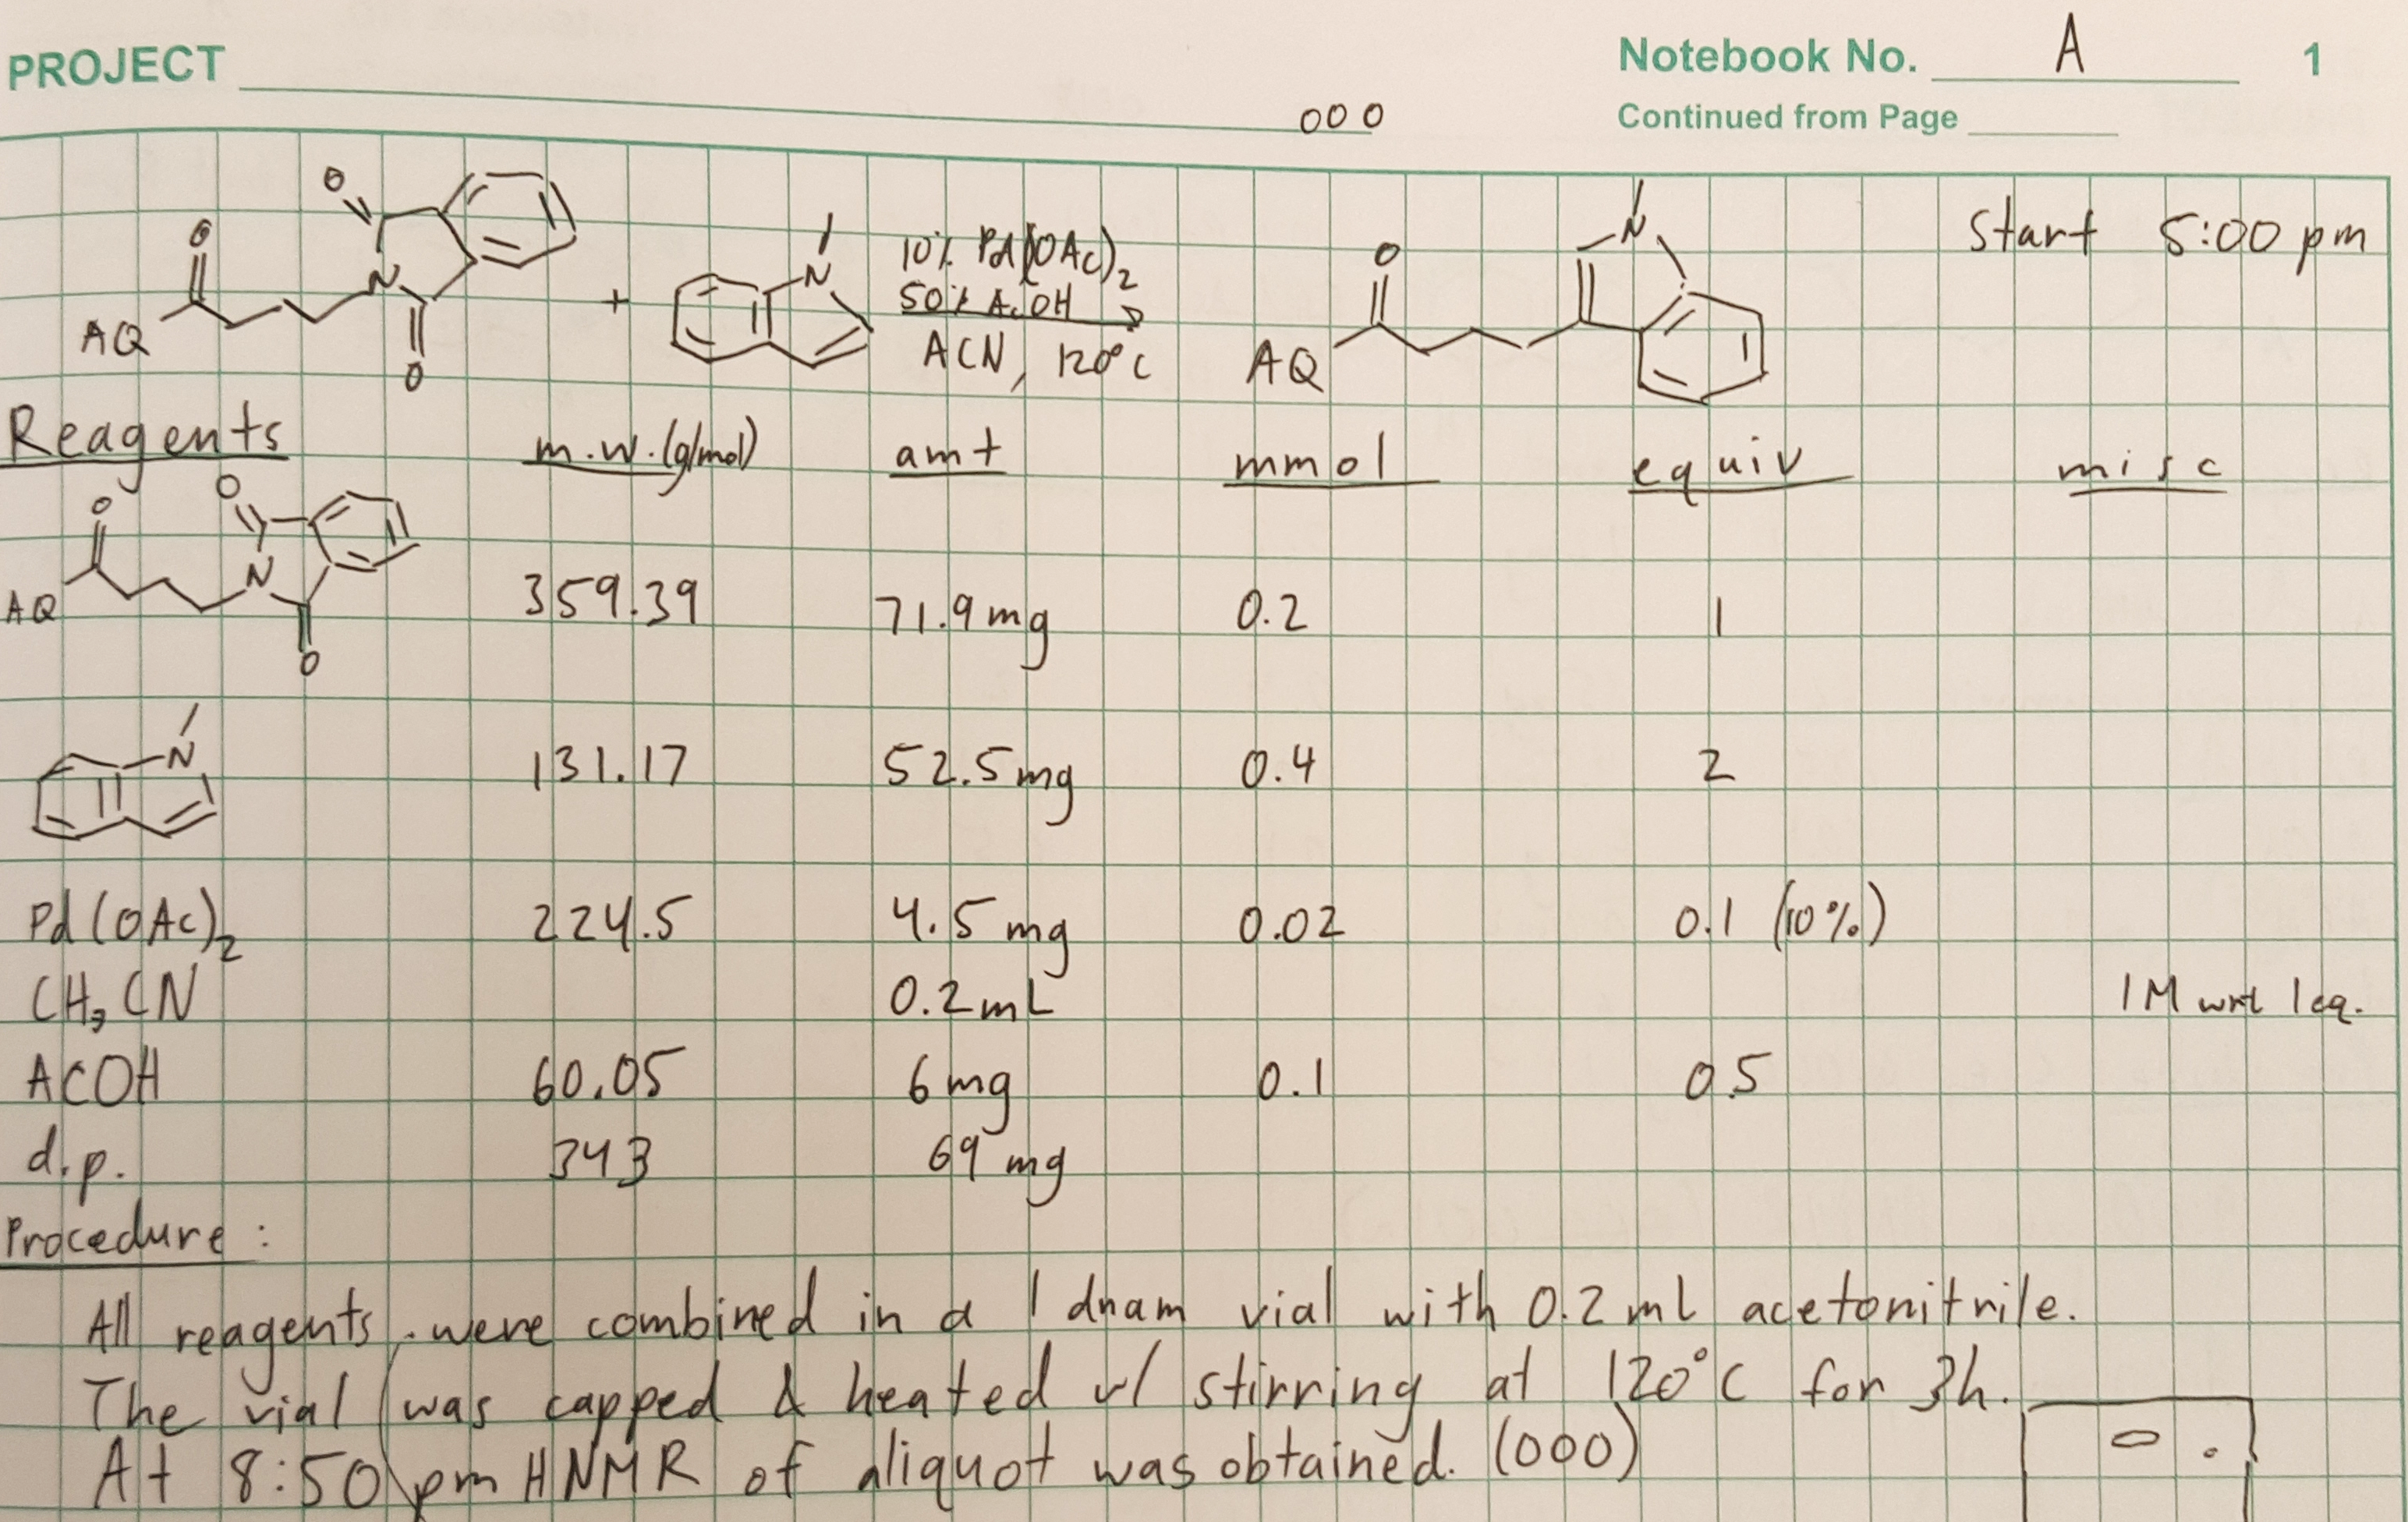 PROJECT
Notebook No. A 1
000
Continued from Page
O
O
N
O
AQ
+
N
10% Pd(OAc)2
50% AcOH
ACN, 120°C
O
N
AQ
Start 5:00 pm
Reagents m.w.(g/mol) amt mmol equiv misc
O
O
N
O
AQ
359.39 71.9mg 0.2 1
N
131.17 52.5mg 0.4 2
Pd(OAc)2 224.5 4.5mg 0.02 0.1 (10%)
CH3CN 0.2mL 1M wrt 1eq.
ACOH 60.05 6mg 0.1 0.5
d.p. 343 69 mg
Procedure:
All reagents were combined in a 1 dram vial with 0.2 mL acetonitrile.
The vial was capped & heated w/ stirring at 120°C for 3h.
At 8:50 pm HNMR of aliquot was obtained. (000)